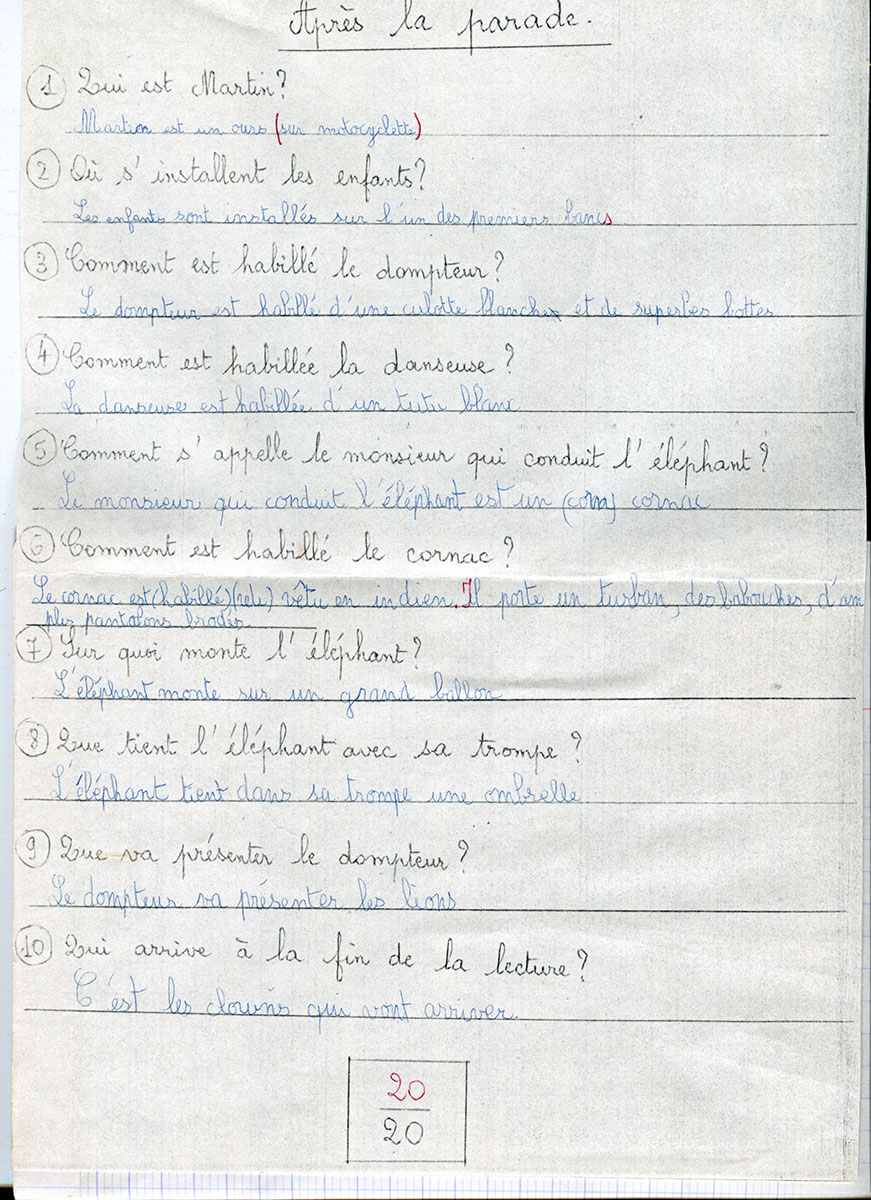 Après la parade.
1 Qui est Martin?
Martion est un ours (sur motocyclette)
2 Où s'installent les enfants?
Les enfants sont installés sur l'un des premiers bancs
3 Comment est habillé le dompteur?
Le dompteur est habillé d'une culotte blanche et de superbes bottes
4 Comment est habillée la danseuse?
La danseuse est habillée d'un tutu blanc
5 Comment s'appelle le monsieur qui conduit l'éléphant?
Le monsieur qui conduit l'éléphant est un (corn) cornac
6 Comment est habillé le cornac?
Le cornac est (habillé) (velu) vêtu en indien. Il porte un turban, des babouches, d'am
ples pantalons brodés.
7 Sur quoi monte l'éléphant?
L'éléphant monte sur un grand ballon
8 Que tient l'éléphant avec sa trompe?
L'éléphant tient dans sa trompe une ombrelle.
9 Que va présenter le dompteur?
Le dompteur va présenter les lions
10 Qui arrive à la fin de la lecture?
C'est les clowns qui vont arriver.
20
20